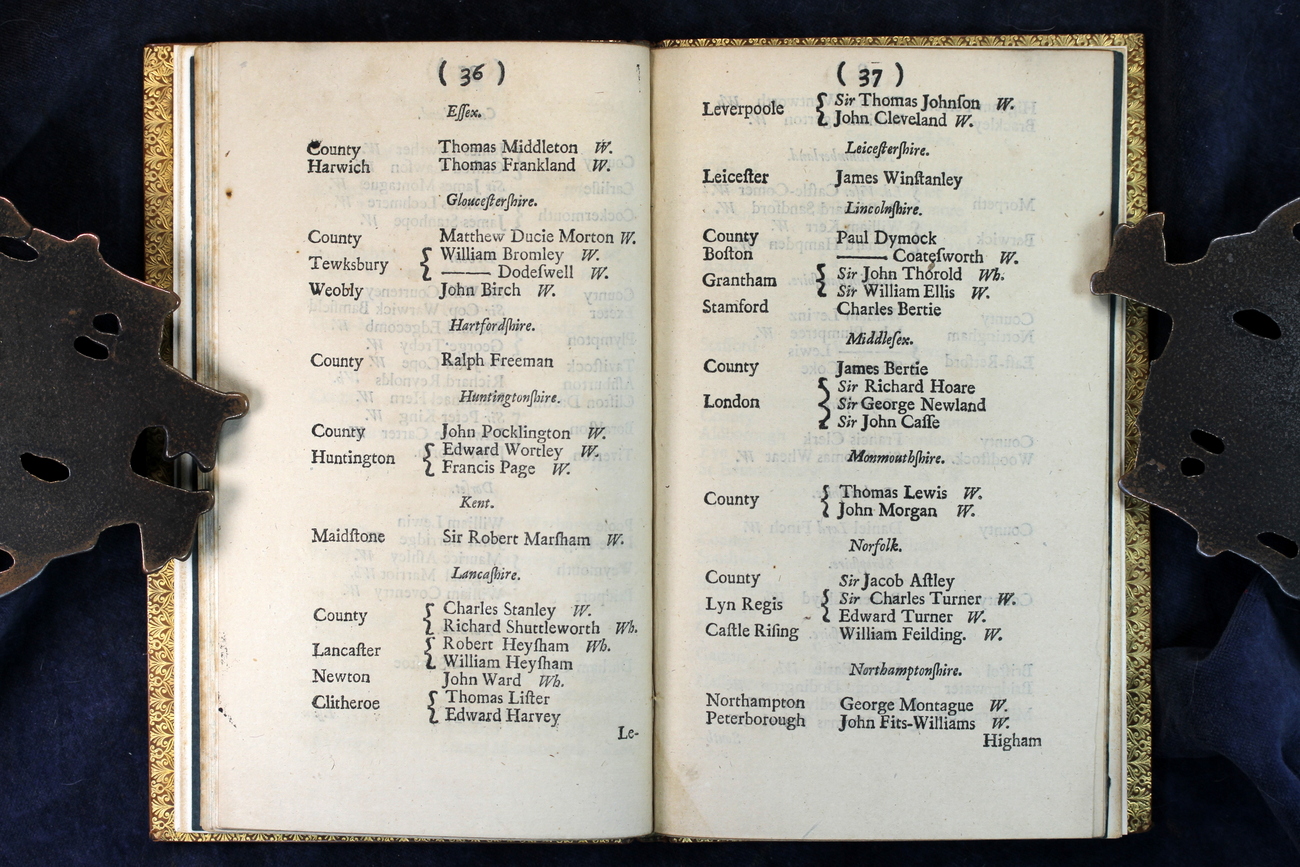 ( 36 )
Eſſex.
County Thomas Middleton W.
Harwich Thomas Frankland W.
Glouceſterſhire.
County Matthew Ducie Morton W.
Tewksbury { William Bromley W.
——— Dodeſwell W.
Weobly John Birch W.
Hartfordſhire.
County Ralph Freeman
Huntingtonſhire.
County John Pocklington W.
Huntington { Edward Wortley W.
Francis Page W.
Kent.
Maidſtone Sir Robert Marſham W.
Lancaſhire.
County { Charles Stanley W.
Richard Shuttleworth Wh.
Lancaſter { Robert Heyſham Wh.
William Heyſham
Newton John Ward Wh.
Clitheroe { Thomas Liſter
Edward Harvey
Le-
( 37 )
Leverpoole { Sir Thomas Johnſon W.
John Cleveland W.
Leiceſterſhire.
Leiceſter James Winſtanley
Lincolnſhire.
County Paul Dymock
Boſton ——— Coateſworth W.
Grantham { Sir John Thorold Wh.
Sir William Ellis W.
Stamford Charles Bertie
Middleſex.
County James Bertie
London { Sir Richard Hoare
Sir George Newland
Sir John Caſſe
Monmouthſhire.
County { Thomas Lewis W.
John Morgan W.
Norfolk.
County Sir Jacob Aſtley
Lyn Regis { Sir Charles Turner W.
Edward Turner W.
Caſtle Riſing William Feilding. W.
Northamptonſhire.
Northampton George Montague W.
Peterborough John Fits-Williams W.
Higham